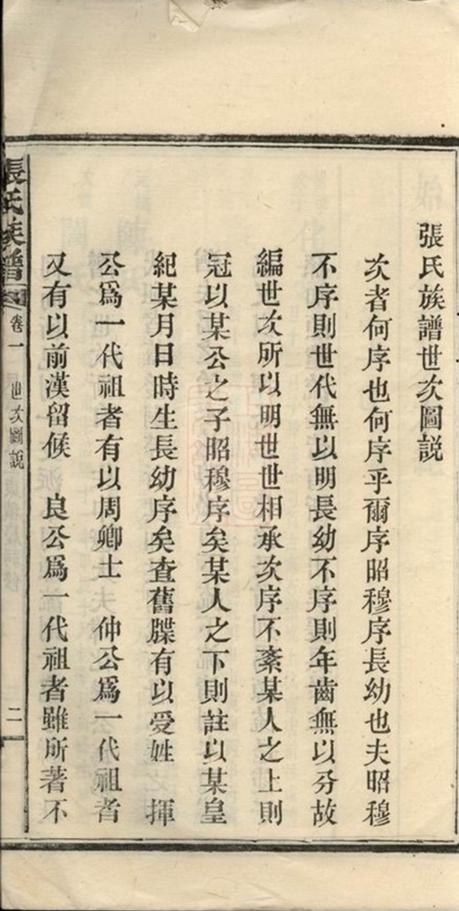 張氏族譜世次圖說
次者何序也何序乎爾序昭穆序長幼也夫昭穆
不序則世代無以明長幼不序則年齒無以分故
編世次所以明世世相承次序不紊某人之上則
冠以某公之子昭穆序矣某人之下則註以某皇
紀某月日時生長幼序矣查舊牒有以受姓 揮
公爲一代祖者有以周卿士 仲公爲一代祖者
又有以前漢留候 良公爲一代祖者雖所著不
張氏族譜 卷一 世次圖說 二